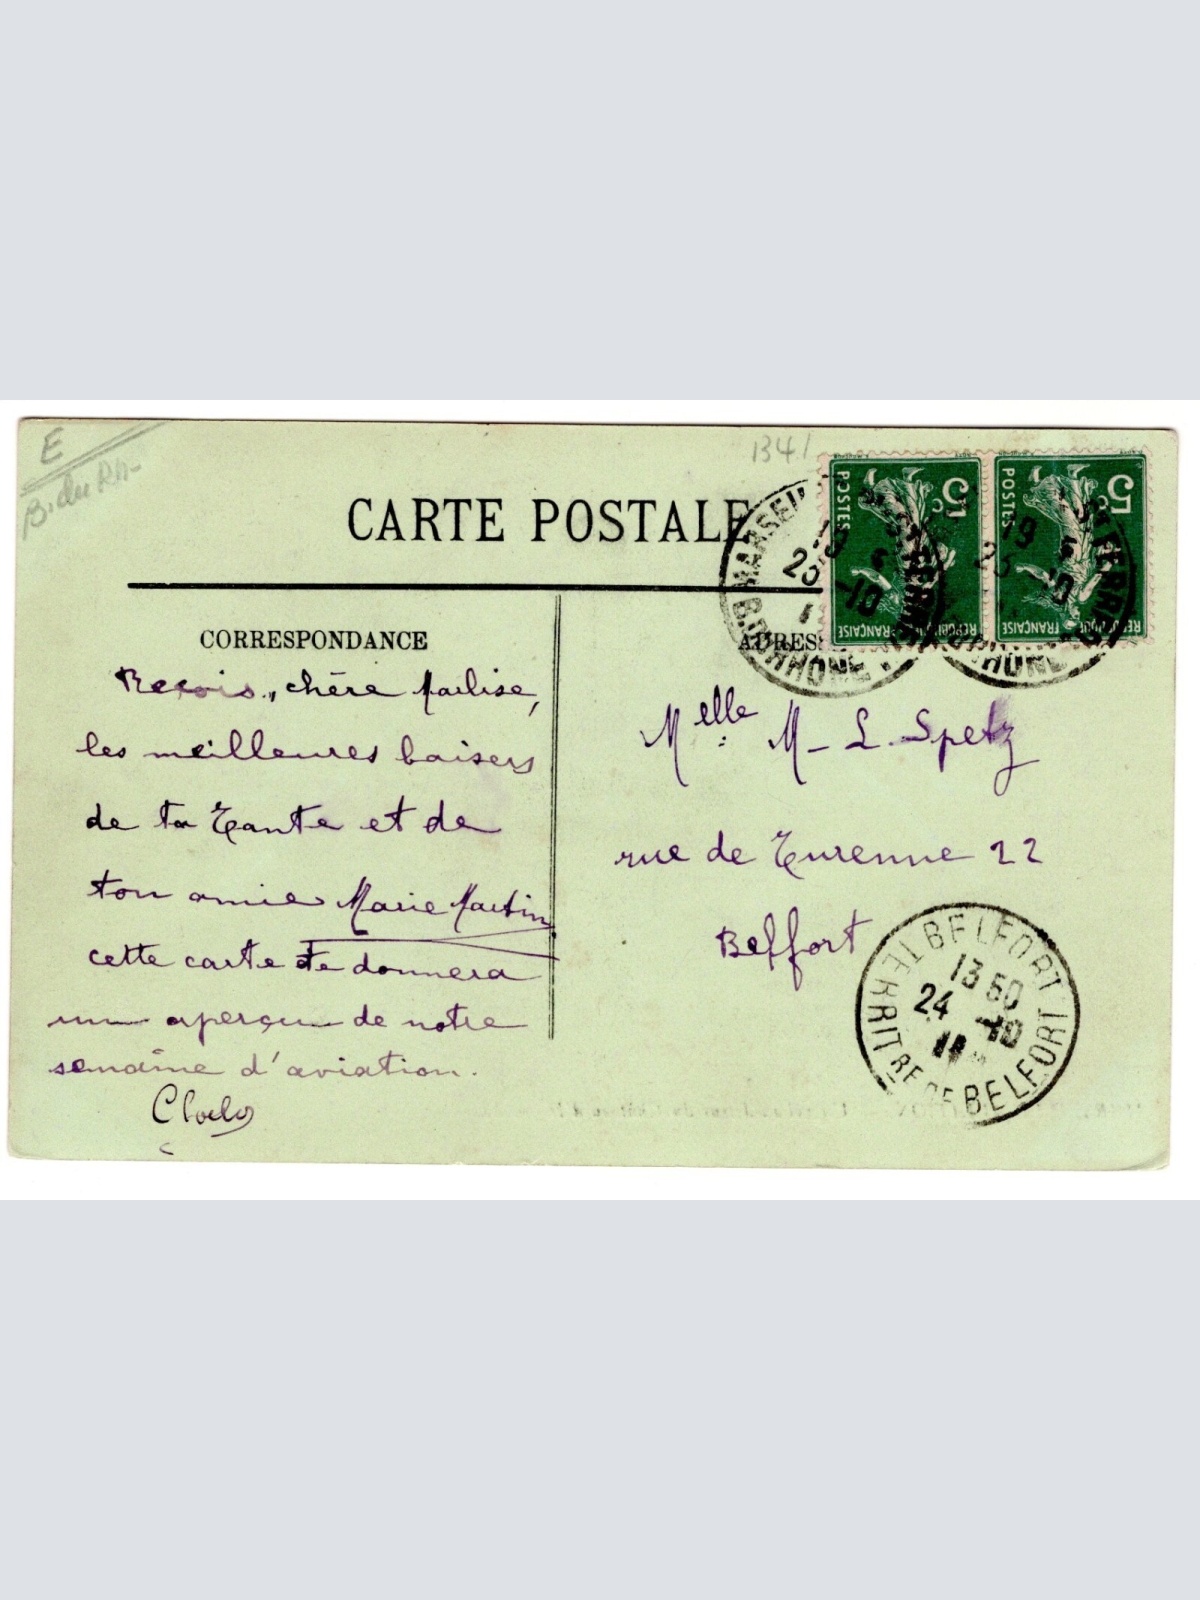 E
B. du Rh-
1341
CARTE POSTALE
CORRESPONDANCE
Reçois, chère Marlise,
les meilleures baisers
de ta Tante et de
ton amie Marie Martin
cette carte te donnera
un aperçu de notre
semaine d'aviation.
5c
POSTES
REPUBLIQUE FRANÇAISE
5c
POSTES
REPUBLIQUE FRANÇAISE
MARSEILLE ST FERREOL
19
23 -10
B. DU RHONE
Melle M-L. Spetz
rue de Turenne 22
Belfort
BELFORT
13 50
24 -10
TERRITRE DE BELFORT